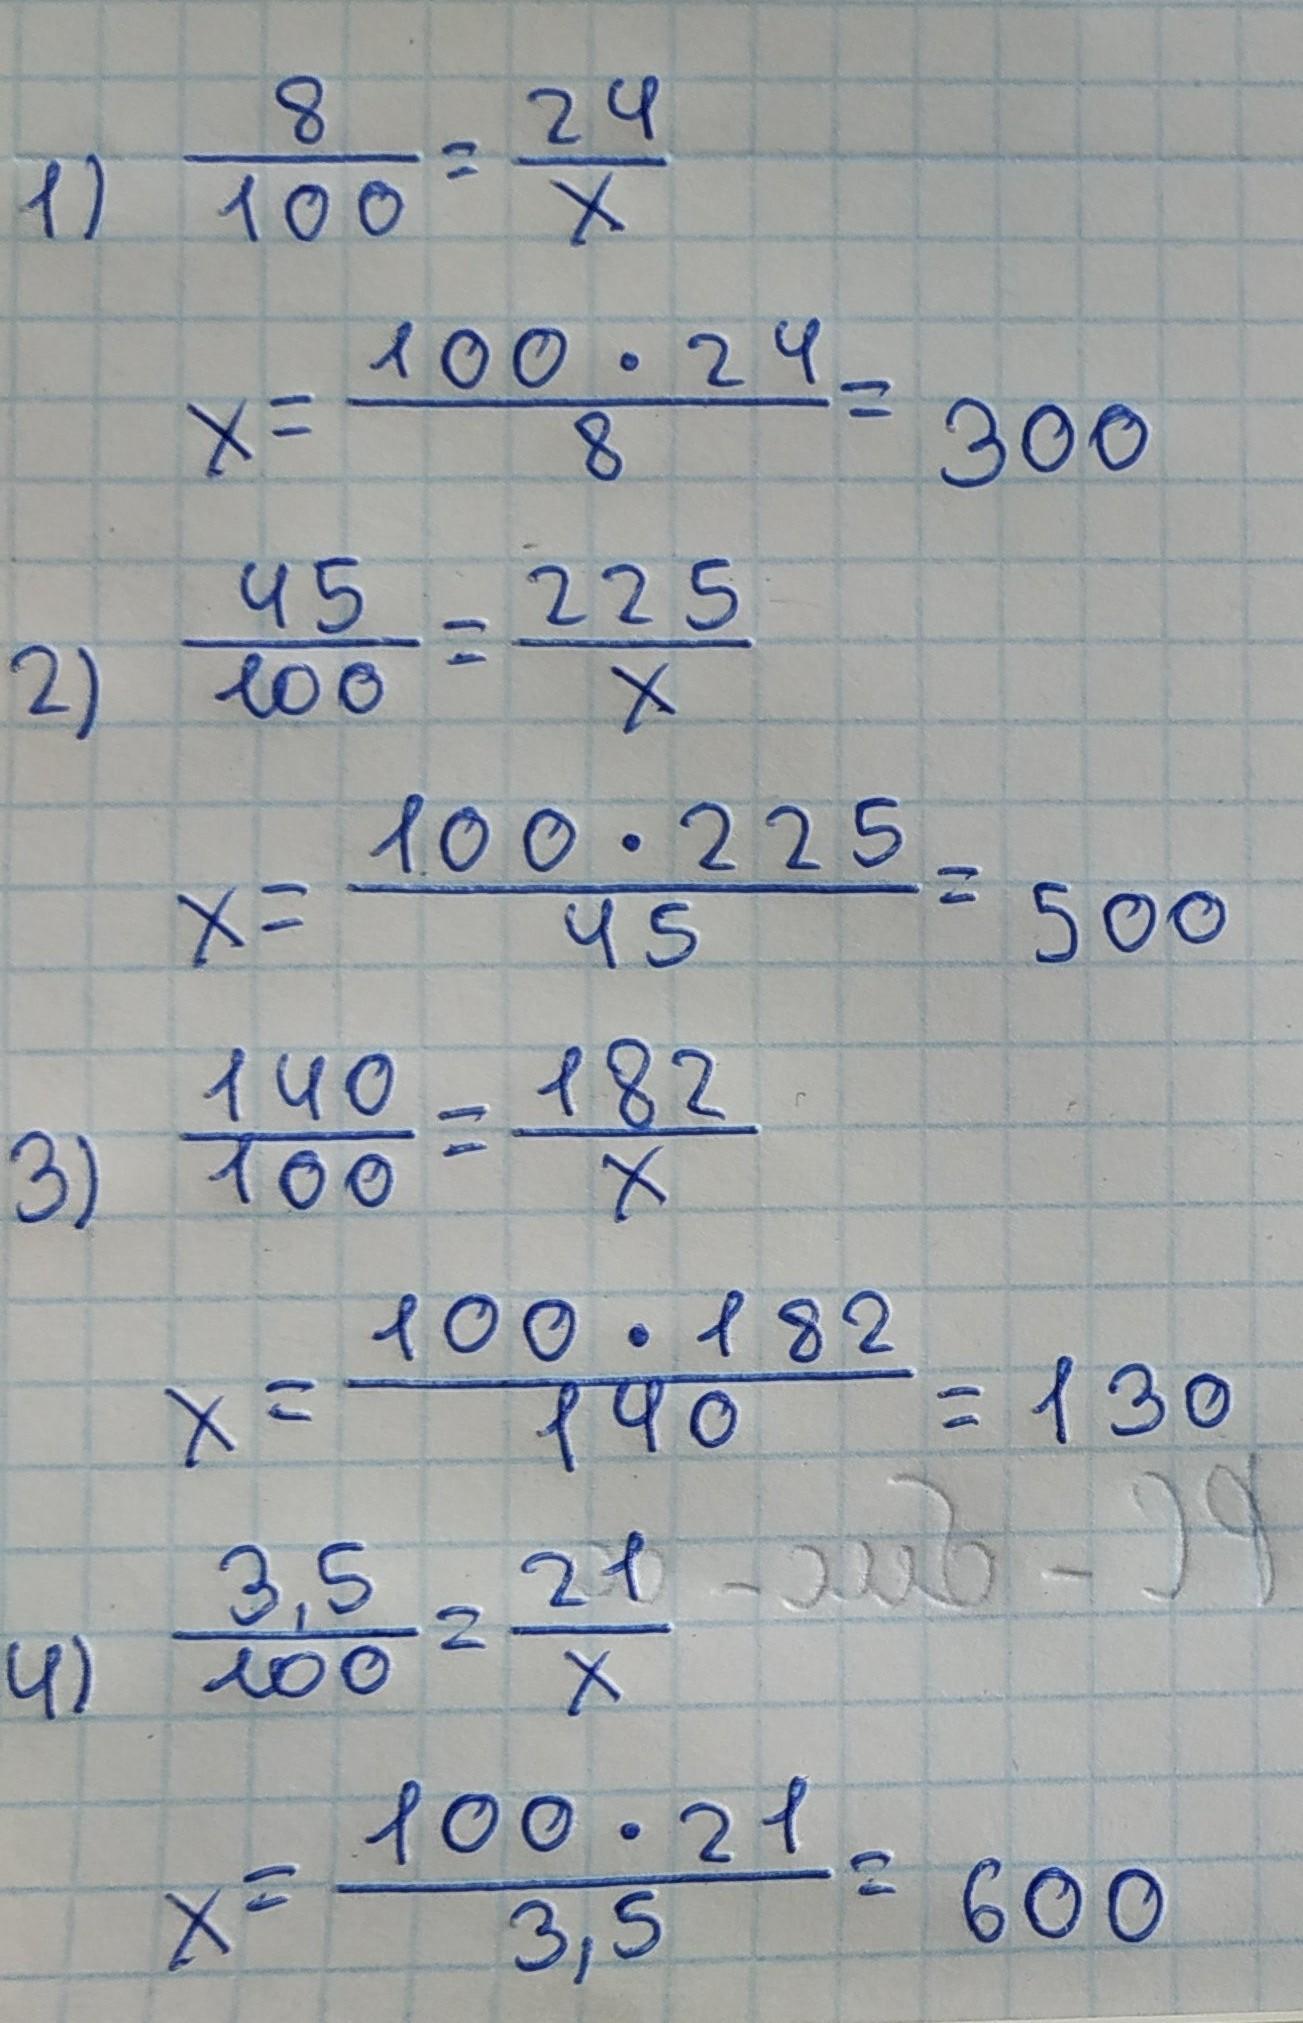 1) 8/100 = 24/x
x = 100 · 24/8 = 300
2) 45/100 = 225/x
x = 100 · 225/45 = 500
3) 140/100 = 182/x
x = 100 · 182/140 = 130
4) 3,5/100 = 21/x
x = 100 · 21/3,5 = 600